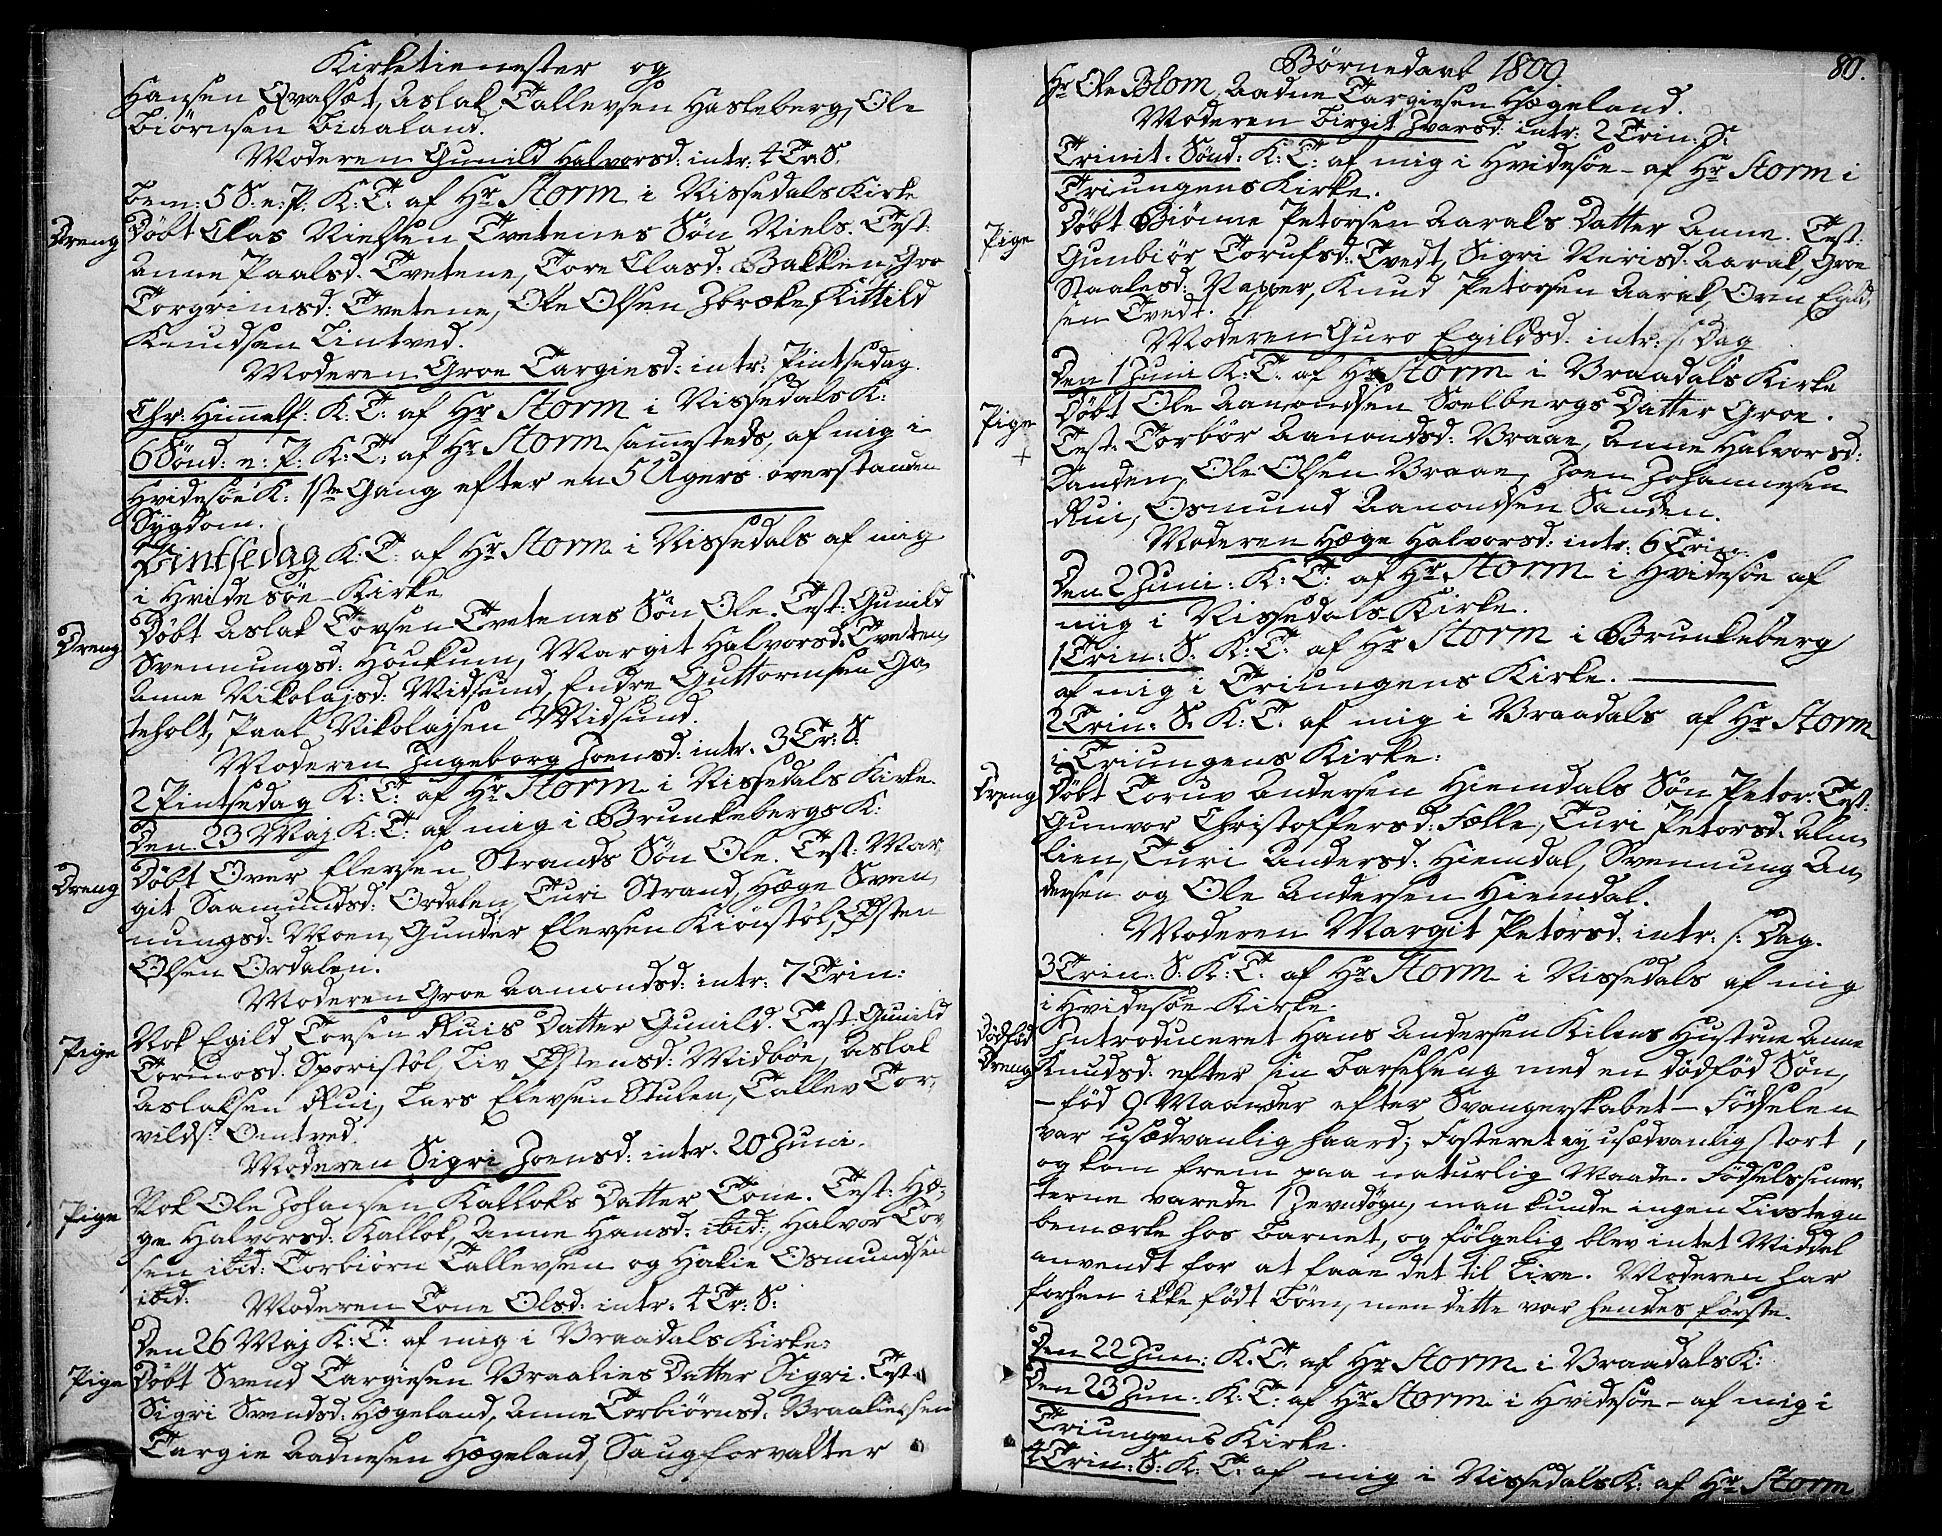 Kirketienester og
Hansen Qvalsæt, Aslak Tallevsen Hasleberg, Ole
Biörnsen Bigaland.
Moderen Gunild Halvorsd: intr: 4 Tr: S.
bem: 5 S. e: P. K: T: af Hr Storm i Nissedals Kirke
Dreng Döbt Clas Nielsen Tvetenes Sön Niels. Test:
Anne Paalsd. Tvetene, Tore Clasd: Bakken, Gro
Torgrimsd: Tvetene, Ole Olsen Zbræke, Kittild
Knudsen Lintved.
Moderen Groe Targiesd: intr: Pintsedag.
Chr: Himmelf: K: T: af Hr Storm i Nissedals K:
6 Sönd: e: P: K: T: af Hr Storm sammesteds, af mig i
Hvidesöe K: 1ste Gang efter en 5 Ugers overstanden
Sygdom.
Pintsedag K: T: af Hr Storm i Nissedals af mig
i Hvidesöe Kirke
Dreng Döbt Aslak Tovsen Tvetenes Sön Ole. Test: Gunild
Svennungsd: Houkum, Margit Halvorsd: Tveten,
Anne Nikolajsd: Midsund, Endre Guttormsen Ga,
teholt, Paal Nikolajsen Midsund.
Moderen Ingeborg Joensd: intr. 3 Tr: S.
2 Pintsedag K: T: af Hr Storm i Nissedals Kirke.
Den 23 Maj K: T: af mig i Brunkebergs K:
Dreng Döbt Over Elevsen Strands Sön Ole. Test: Mar,
git Saamundsd: Ordalen, Turi Strand, Hæge Sven,
nungsd: Moen, Gunder Elevsen Kiönstöl, Östen
Olsen Ordalen.
Moderen Groe Aamondsd: intr: 7 Trin:
Pige Nok Egild Tovsen Ruis Datter Gunild. Test: Gunild
Tormosd. Sporistöl, Liv Östensd: Midböe, Aslak
Aslaksen Rui, Lars Elevsen Stulen, Tallev Tor,
vilds: Oentved.
Moderen Sigri Joensd: intr. 20 Juni.
Pige Nok Ole Johansen Kalloks Datter Tone. Test: Hæ,
ge Halvorsd: Kallok, Anne Hansd: ibid:, Halvor Tov,
sen ibid: Torbiörn Tallevsen og Hakie Osmundsen
ibid:
Moderen Tone Olsd: intr. 4 Tr: S:
Den 26 Maj K: T: af mig i Vraadals Kirke:
Pige Döbt Svend Targiesen Vraalies Datter Sigri. Test:
Sigri Svendsd: Hægeland, Anne Torbiörnsd: Vraaliesen
Targie Aadnesen Hægeland, Saugforvalter
Börnedaab 1809 80.
Hr Ole Blom, Aadne Targiesen Hægeland.
Moderen Birgit Ivarsd: intr: 2 Trin: S:
Trinit. Sönd: K: T: af mig i Hvidesöe - af Hr Storm i
Triungens Kirke.
Pige Döbt Biönne Petorsen Aaraks Datter Anne. Test:
Gunbiör Torufsd: Tvedt, Sigri Nerisd: Aarak, Groe
Staalesd: Napper, Knud Petorsen Aarak, Orm Egild,
sen Tvedt.
Moderen Guro Egildsd: intr: s: Dag
Den 1 Juni K: T: af Hr Storm i Vraadals Kirke
Pige Döbt Ole Aamondsen Soelbergs Datter Groe.
+ Test: Torbör Aanondsd: Vraae, Anne Halvorsd:
Sanden, Ole Olsen Vraae, Joen Johannesen
Rui, Osmund Aanondsen Sanden.
Moderen Hæge Halvorsd: intr: 6 Trin:
Den 2 Juni: K: T: af Hr Storm i Hvidesöe af
mig i Nissedals Kirke.
1 Trin: S. K: T: af Hr Storm i Brunkeberg
af mig i Triungens Kirke.
2 Trin: S. K: T. af mig i Vraadals af Hr Storm
i Triungens Kirke:
Dreng Döbt Toruv Andersen Hiemdals Sön Petor. Test:
Gunvor Christoffersd: Fælle, Turi Petorsd: Alm,
lien, Turi Andersd: Hiemdal, Svennung An,
dersen og Ole Andersen Hiemdal.
Moderen Margit Petorsd: intr. s: Dag.
3 Trin: S: K: T: af Hr Storm i Nissedals af mig
i Hvidesöe Kirke.
Dödföd Introduceret Hans Andersen Kilens Hustrue Anne
Dreng Knudsd: efter sin Barselseng med en dödföd Sön,
- föd 9 Maaneder efter Svangerskabet - Födselen
var usædvanlig haard; Fosteret ey usædvanlig stort,
og kom frem paa naturlig Maade. Födselssmer,
terne varede 1 Jevndögn, man kunde ingen Livstegn
bemærke hos Barnet, og fölgelig blev intet Middel
anvendt for at faae det til Live. Moderen har
forhen ikke födt Börn, men dette var hendes förste.
Den 22 Jun: K. T. af Hr Storm i Vraadals K:
Den 23 Jun: K: T: af Hr Storm i Hvidesöe - af mig i
Triungens Kirke.
4 Trin: S: K: T: af mig i Nissedals K: af Hr Storm